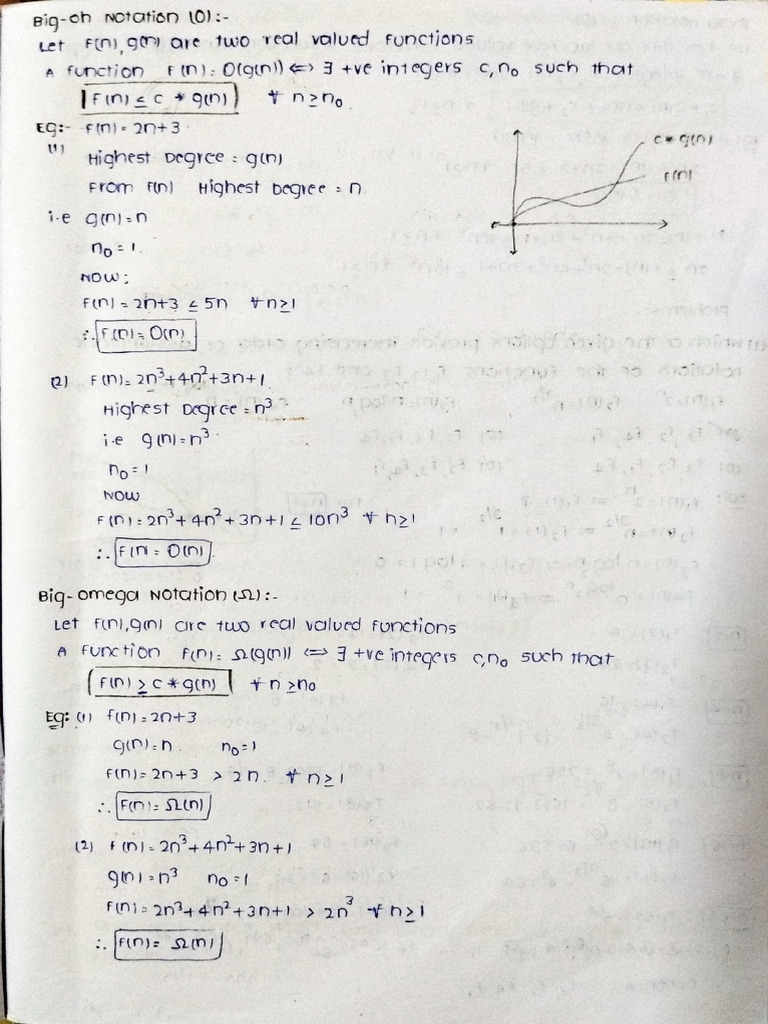 Big-oh Notation (O):-
Let F(n), g(n) are two real valued functions
A function F(n) = O(g(n)) ⇔ ∃ +ve integers c, n₀ such that
F(n) ≤ c * g(n) ∀ n ≥ n₀
EG:- F(n) = 2n+3
(1)
Highest Degree = g(n)
From F(n) Highest Degree = n
c * g(n)
F(n)
i.e g(n) = n
n₀ = 1
NOW:
F(n) = 2n+3 ≤ 5n ∀ n ≥ 1
∴ F(n) = O(n)
(2) F(n) = 2n³+4n²+3n+1
Highest Degree = n³
i.e g(n) = n³
n₀ = 1
NOW
F(n) = 2n³+4n²+3n+1 ≤ 10n³ ∀ n ≥ 1
∴ F(n) = O(n)
Big-omega Notation (Ω):-
Let F(n), g(n) are two real valued functions
A function F(n) = Ω(g(n)) ⇔ ∃ +ve integers c, n₀ such that
F(n) ≥ c * g(n) ∀ n ≥ n₀
Eg: (1) F(n) = 2n+3
g(n) = n n₀ = 1
F(n) = 2n+3 > 2n ∀ n ≥ 1
∴ F(n) = Ω(n)
(2) F(n) = 2n³+4n²+3n+1
g(n) = n³ n₀ = 1
F(n) = 2n³+4n²+3n+1 > 2n³ ∀ n ≥ 1
∴ F(n) = Ω(n)